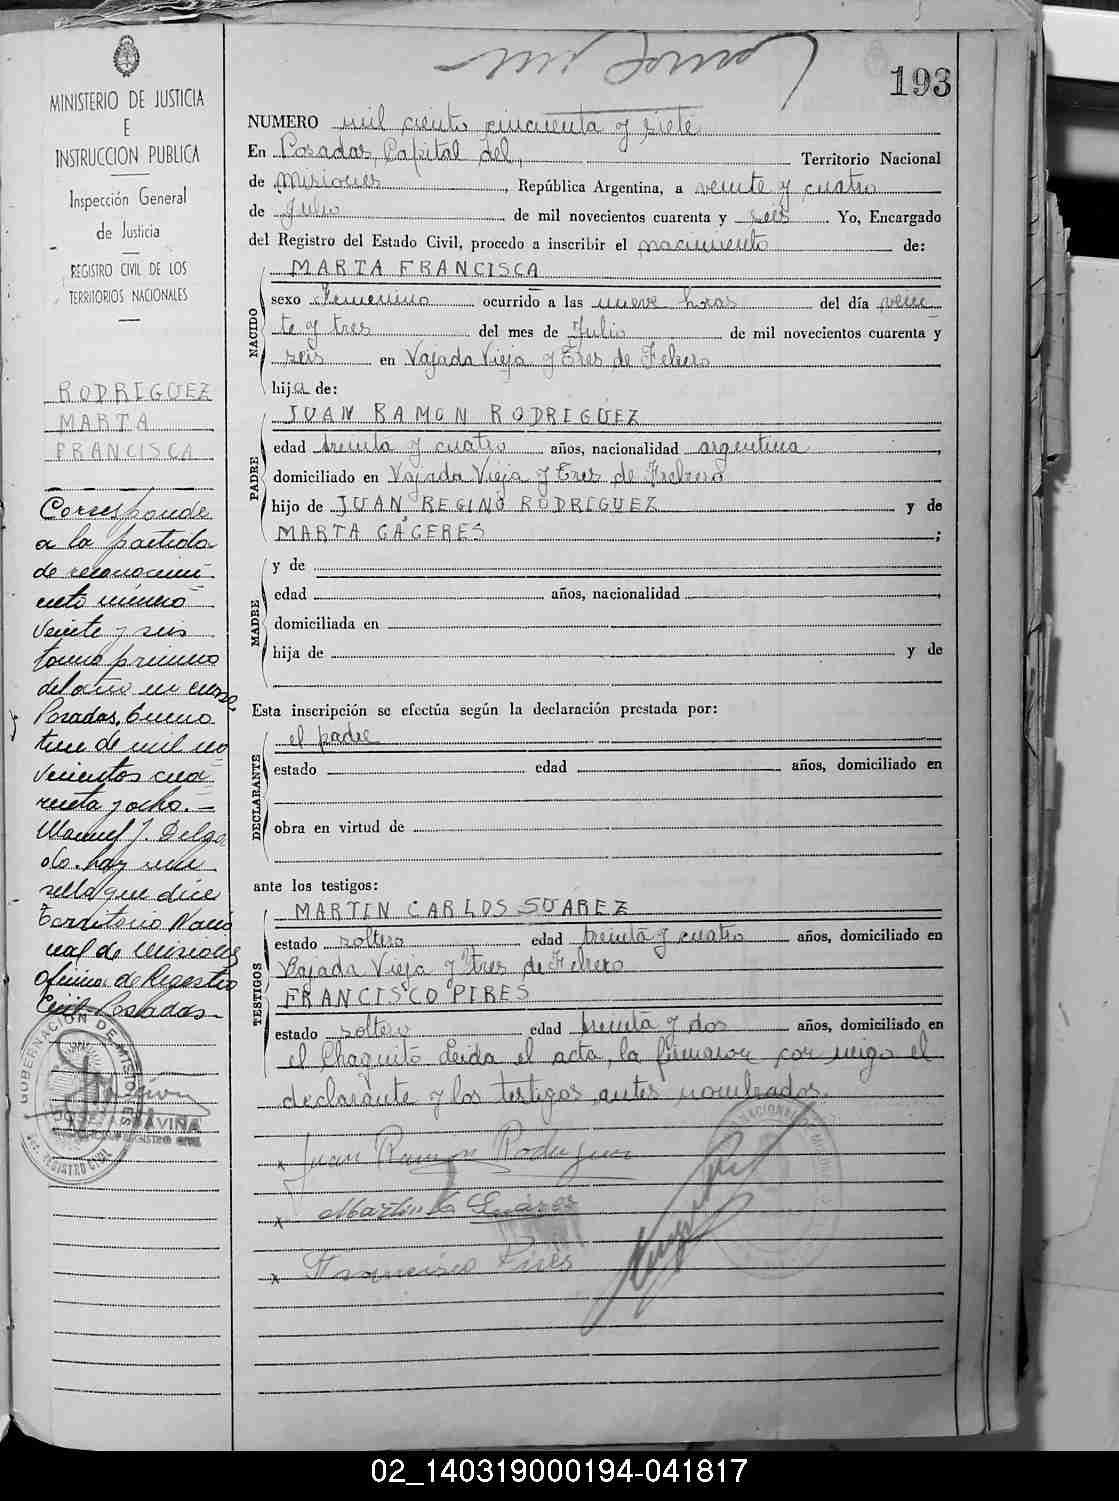 193
MINISTERIO DE JUSTICIA
E
INSTRUCCION PUBLICA
Inspección General
de Justicia
REGISTRO CIVIL DE LOS
TERRITORIOS NACIONALES
RODRIGUEZ
MARTA
FRANCISCA
Corresponde
a la partida
de reconocimi
ento número
veinte y seis
tomo primero
del año en curso,
Posadas, Enero
trece de mil no
vecientos cua
renta y ocho. -
Manuel J. Delga
do. hay un
sello que dice
Territorio Nacio
nal de Misiones
oficina de Registro
Civil-Posadas-
GOBERNACIÓN DE MISIONES
REGISTRO CIVIL
NUMERO mil ciento cincuenta y siete
En Posadas, Capital del, Territorio Nacional
de Misiones, República Argentina, a veinte y cuatro
de Julio de mil novecientos cuarenta y seis. Yo, Encargado
del Registro del Estado Civil, procedo a inscribir el nacimiento de:
NACIDO
MARTA FRANCISCA
sexo Femenino ocurrido a las nueve horas del día vein
te y tres del mes de Julio de mil novecientos cuarenta y
seis en Vajada Vieja y Tres de Febrero
hija de:
PADRE
JUAN RAMON RODRIGUEZ
edad treinta y cuatro años, nacionalidad argentina,
domiciliado en Vajada Vieja y Tres de Febrero
hijo de JUAN REGINO RODRIGUEZ y de
MARTA CÁCERES;
MADRE
y de
edad años, nacionalidad,
domiciliada en
hija de y de
Esta inscripción se efectúa según la declaración prestada por:
DECLARANTE
el padre
estado edad años, domiciliado en
obra en virtud de
ante los testigos:
TESTIGOS
MARTIN CARLOS SUAREZ
estado soltero edad treinta y cuatro años, domiciliado en
Bajada Vieja y Tres de Febrero
FRANCISCO PIRES
estado soltero edad treinta y dos años, domiciliado en
el Chaquito Leida el acta, la firmaron con migo el
declarante y los testigos antes nombrados.
x Juan Ramon Rodriguez
x Martin C Suárez
x Francisco Pires
02_140319000194-041817